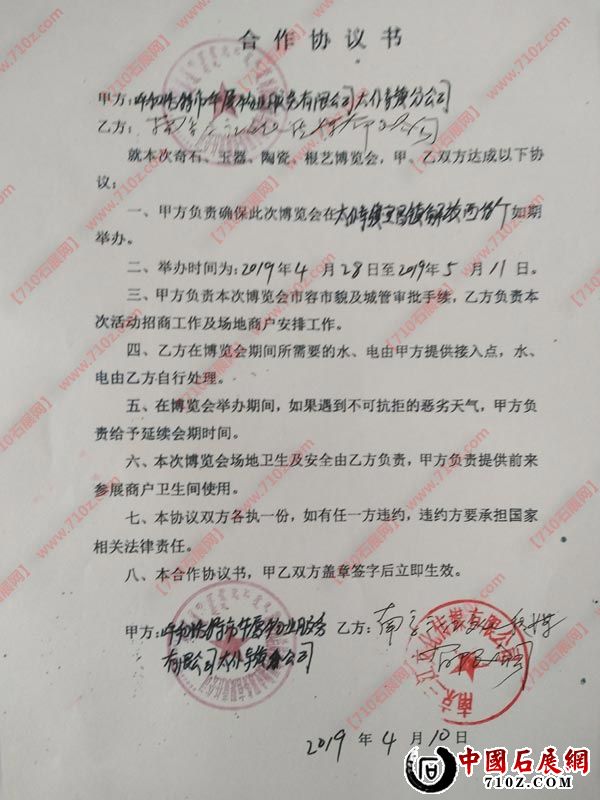 合作协议书
甲方：呼和浩特市华厦物业服务有限公司太仆寺旗分公司
乙方：南京
就本次奇石、玉器、陶瓷、根艺博览会，甲、乙双方达成以下协
议：
一、甲方负责确保此次博览会在太仆寺旗宝昌镇解放西街如期
举办。
二、举办时间为：2019年4月28日至2019年5月11日。
三、甲方负责本次博览会市容市貌及城管审批手续，乙方负责本
次活动招商工作及场地商户安排工作。
四、乙方在博览会期间所需要的水、电由甲方提供接入点，水、
电由乙方自行处理。
五、在博览会举办期间，如果遇到不可抗拒的恶劣天气，甲方负
责给予延续会期时间。
六、本次博览会场地卫生及安全由乙方负责，甲方负责提供前来
参展商户卫生间使用。
七、本协议双方各执一份，如有任一方违约，违约方要承担国家
相关法律责任。
八、本合作协议书，甲乙双方盖章签字后立即生效。
甲方：呼和浩特市华厦物业服务 乙方：南京
有限公司太仆寺旗分公司
2019年4月10日
【710石展网】www.710z.com
中國石展網
www.710z.com